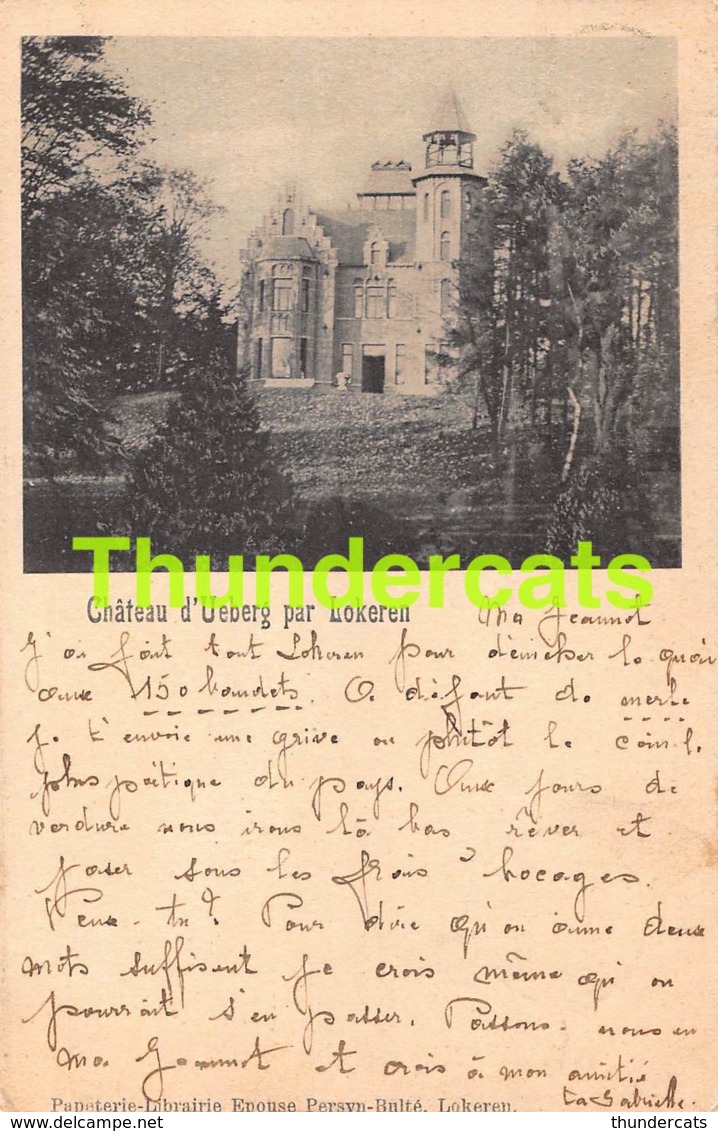 Thundercats
Château d'Ueberg par Lokeren
Ma Jeannot
J'ai fait tout Lokeren pour dénicher le quai
aux 150 baudets. A défaut de merle
je t'envoie une grive ou plutôt le coin le
plus poétique du pays. Aux jours de
verdure nous irons là bas rêver et
jaser sous les frais bocages.
Veux-tu? Pour dire qu'on aime deux
mots suffisent je crois même qu'on
pourrait s'en passer. Passons-nous en
Ma Jeannot et crois à mon amitié
Ta Gabrielle.
Papeterie-Librairie Epouse Persyn-Bulté, Lokeren.
www.delcampe.net
thundercats